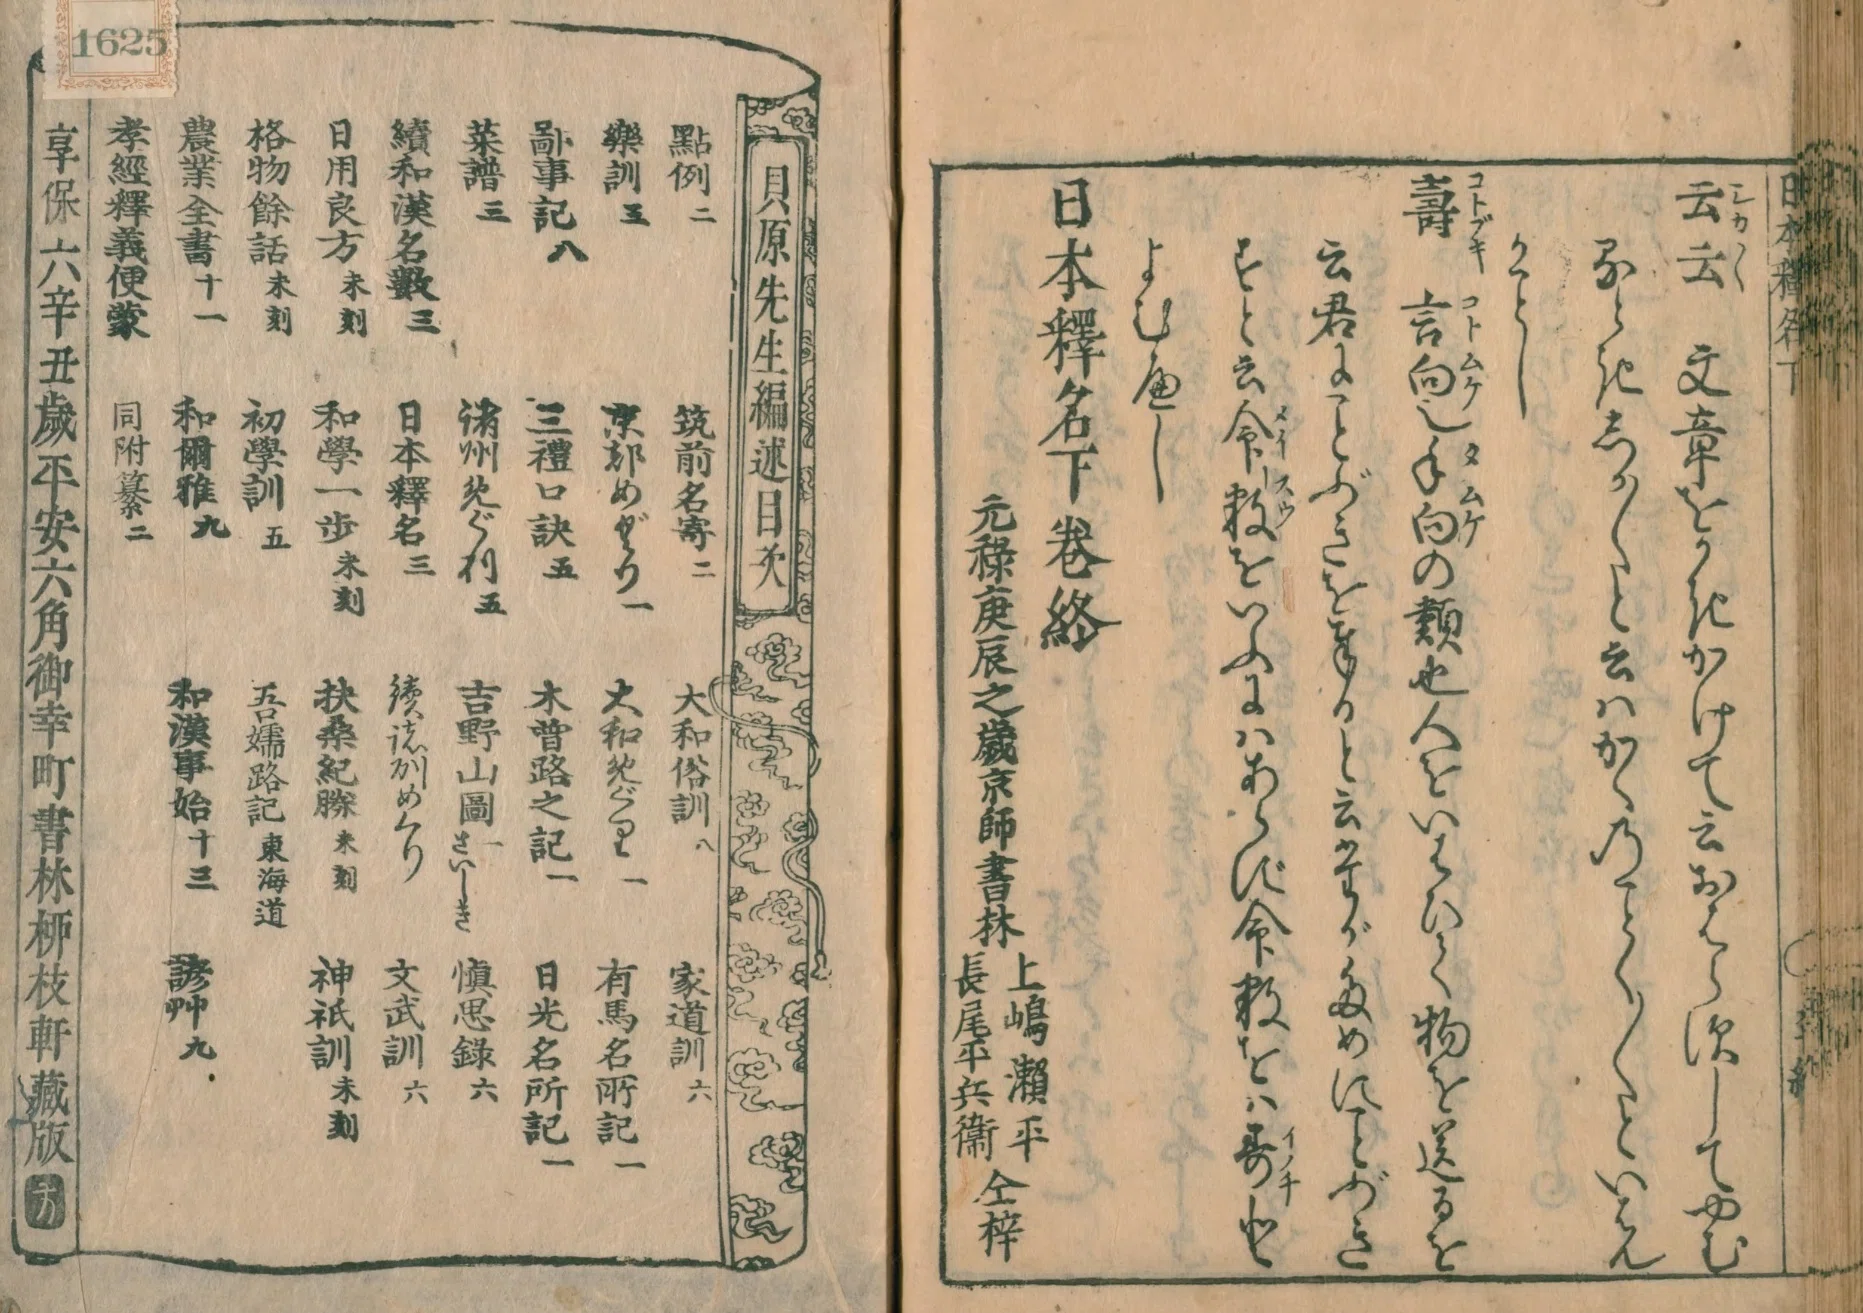 日本釋名下
云云 文章をかきかけて云おはらずしてやむ
シカ〱
るときしか〱と云ハかくのことく〱といはん
かことし
壽 言向也手向の類也人をいはひて物を送るを
コトブキ コトムケ タムケ
云君にことぶきを奉ると云堂がためにことぶき
すと云命数をいふにハあらず命数をハ壽と
メイスウ イノチ
よむべし
日本釋名下巻終
元祿庚辰之歳京師書林
上嶋瀬平
長尾平兵衞
仝梓
貝原先生編述目次
點例 二 筑前名寄 二 大和俗訓 八 家道訓 六
樂訓 五 京都めぐり 一 大和めぐり 一 有馬名所記 一
鄙事記 八 三禮口訣 五 木曽路之記 一 日光名所記 一
菜譜 三 諸州めぐり 五 吉野山圖 一 さいしき 愼思錄 六
續和漢名數 三 日本釋名 三 續諸州めくり 文武訓 六
日用良方 未刻 和學一歩 未刻 扶桑紀勝 未刻 神祇訓 未刻
格物餘話 未刻 初學訓 五 吾嬬路記 東海道
農業全書 十一 和爾雅 九 和漢事始 十三 諺艸 九
孝經釋義便蒙 同附纂 二
享保六辛丑歳平安六角御幸町書林柳枝軒藏版
1625